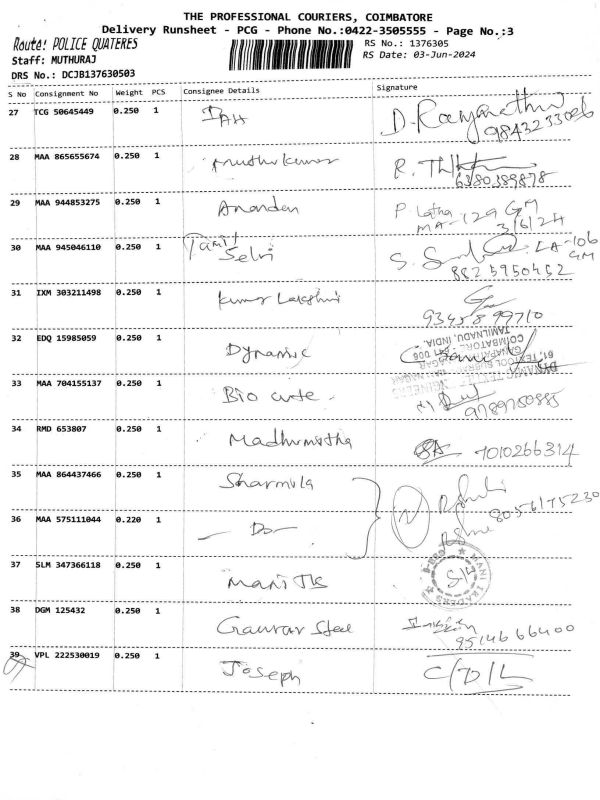 THE PROFESSIONAL COURIERS, COIMBATORE
Delivery Runsheet - PCG - Phone No.:0422-3505555 - Page No.:3
Route: POLICE QUATERES
Staff: MUTHURAJ
DRS No.: DCJB137630503
RS No.: 1376305
RS Date: 03-Jun-2024
S No Consignment No Weight PCS Consignee Details Signature
27 TCG 50645449 0.250 1
28 MAA 865655674 0.250 1 Muthukumar
6380389878
29 MAA 944853275 0.250 1 Anandan P Latha
MA-129 GM
3/6/24
30 MAA 945046110 0.250 1 Tamil Selvi LA-106 GM
8825950452
31 IXM 303211498 0.250 1 Kumar Lakshmi
9345899710
32 EDQ 15985059 0.250 1 Dynamic
COIMBATORE - 641 006
TAMILNADU, INDIA.
33 MAA 704155137 0.250 1 Bio cute
34 RMD 653807 0.250 1 Madhumitha 7010266314
35 MAA 864437466 0.250 1 Sharmila
8056175230
36 MAA 575111044 0.220 1 - Do -
37 SLM 347366118 0.250 1 Mani Tks
MANI TRADERS
38 DGM 125432 0.250 1 Gaurav Steel
9514666400
39 VPL 222530019 0.250 1 Joseph C/D/L